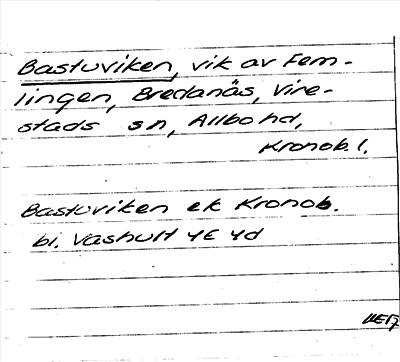 Bastuviken, vik av Fem-
lingen, Bredanäs, Vire-
stads sn, Allbo hd,
Kronob. l.
Bastuviken ek Kronob.
bl. Vashult 4E 4d